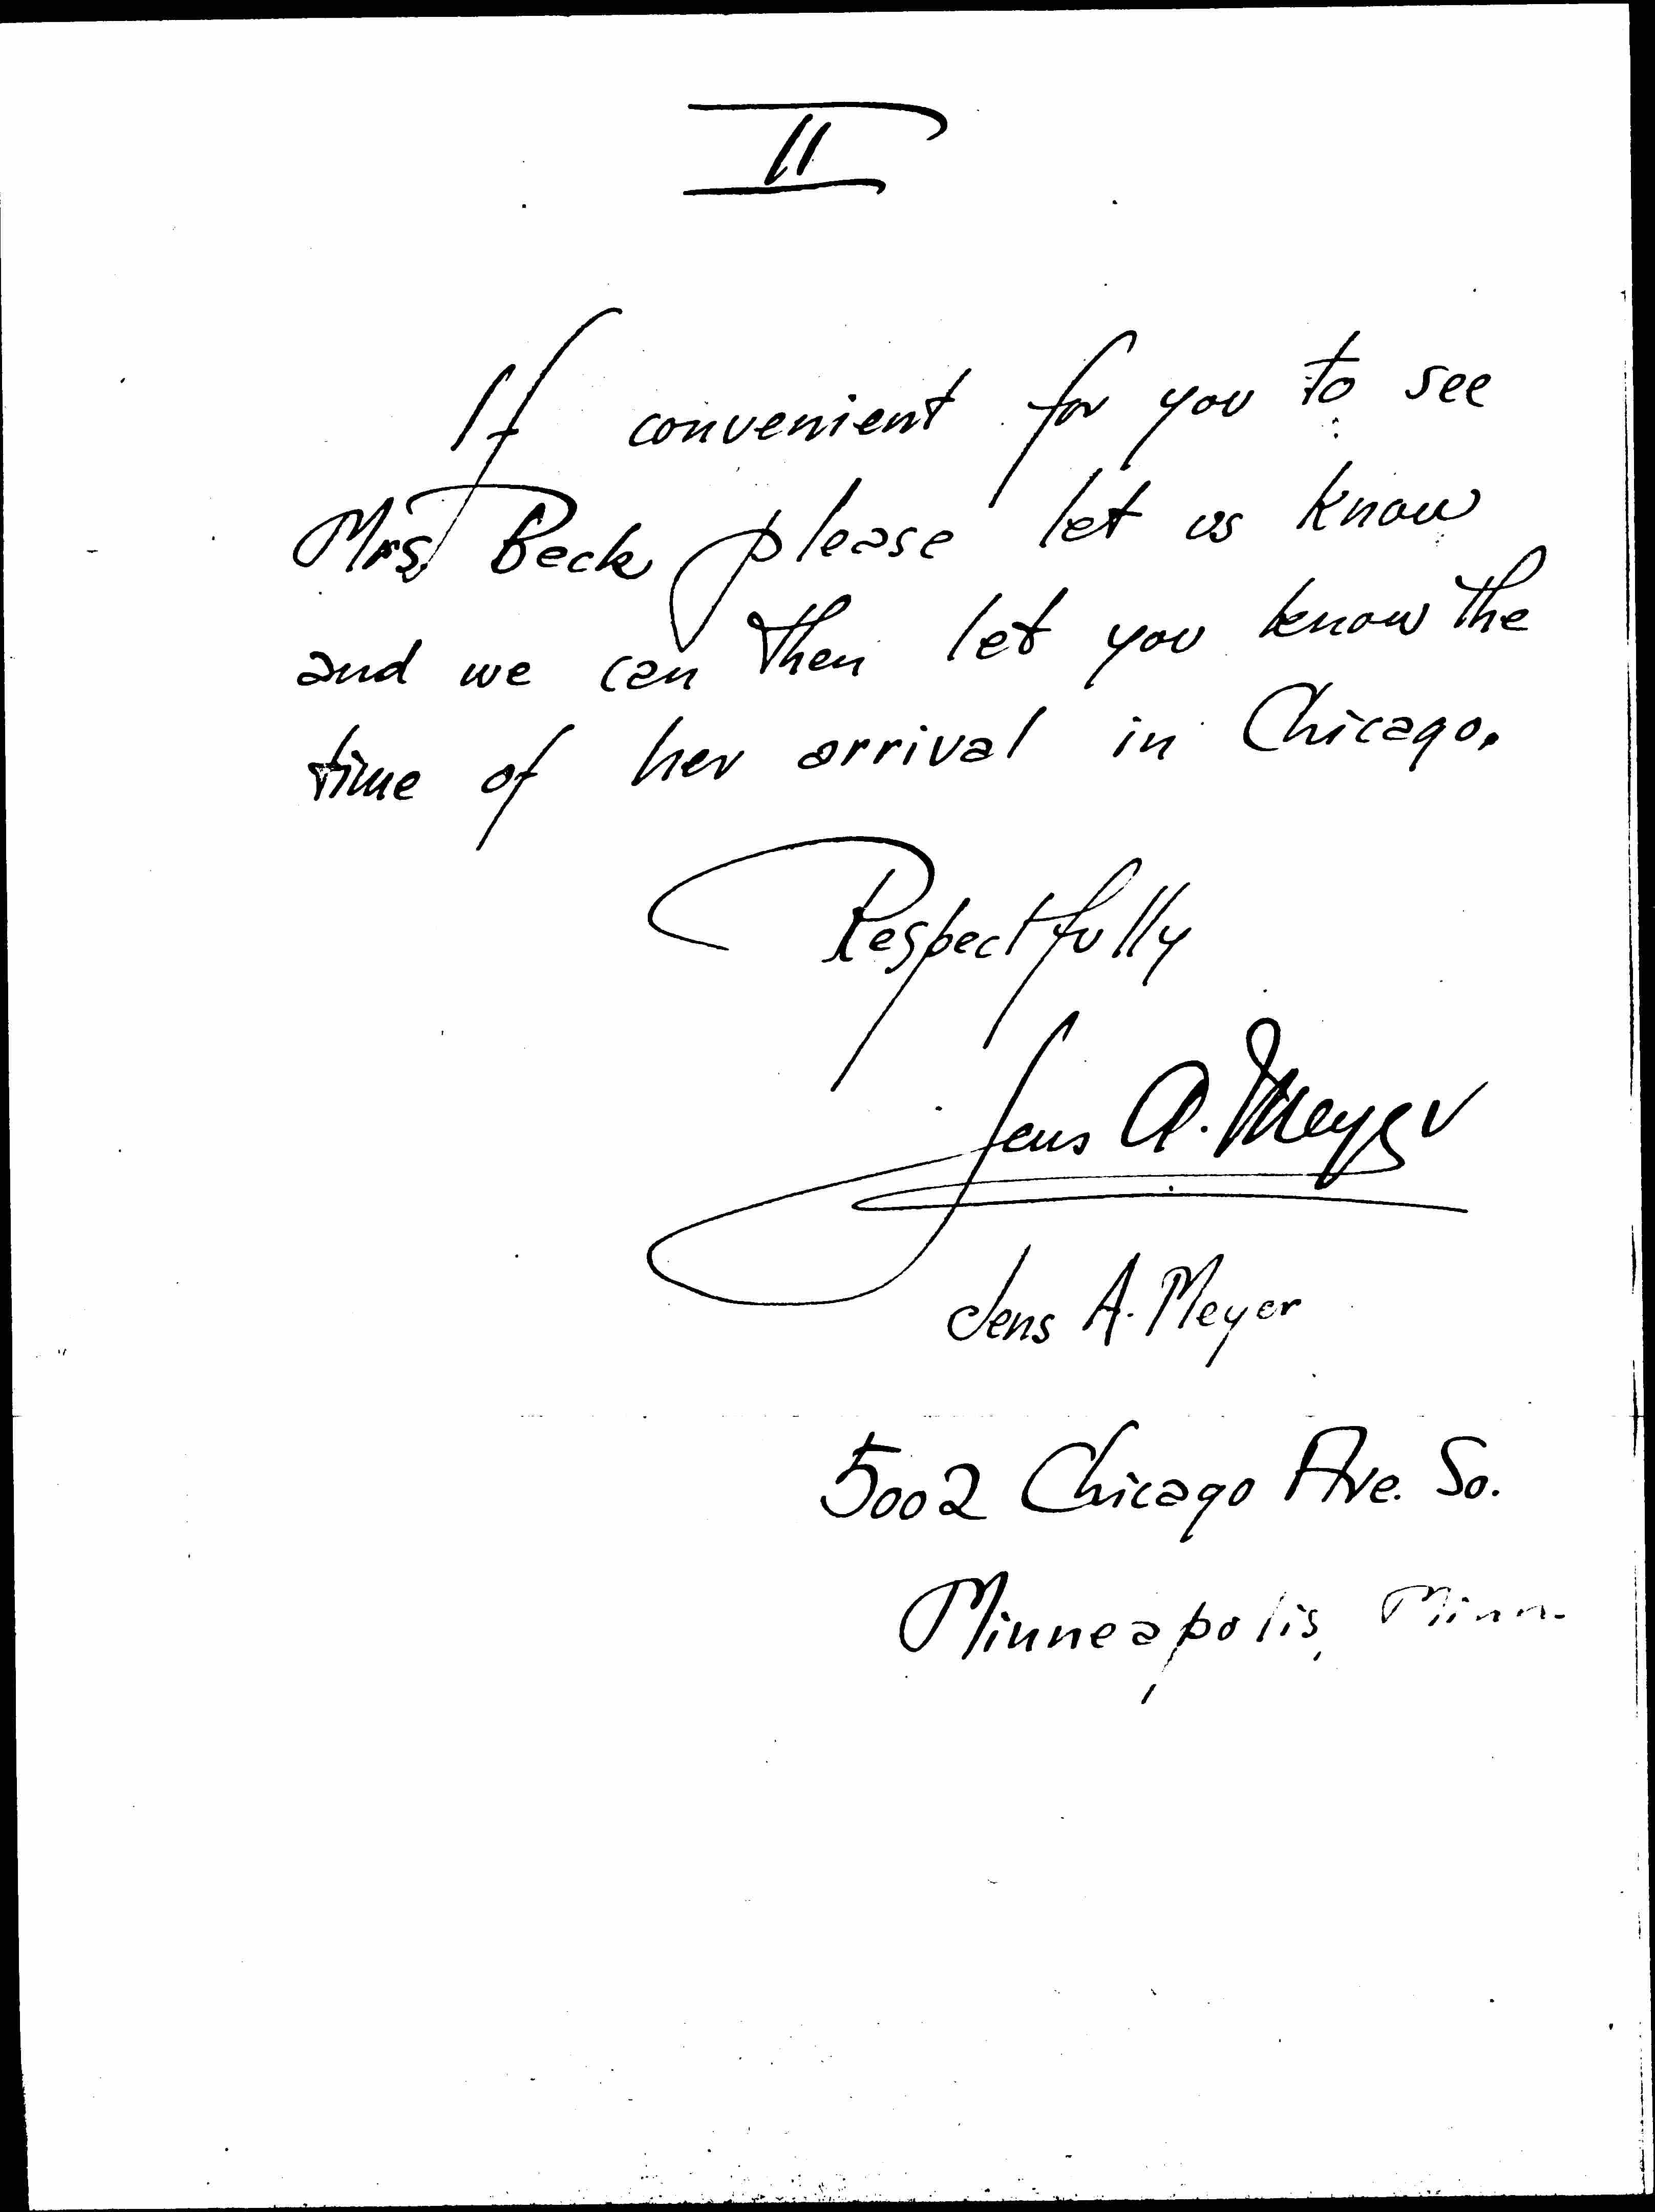 II
If convenient for you to see
Mrs. Beck please let us know
and we can then let you know the
time of her arrival in Chicago.
Respectfully
Jens A. Meyer
Jens A. Meyer
5002 Chicago Ave. So.
Minneapolis, Minn.